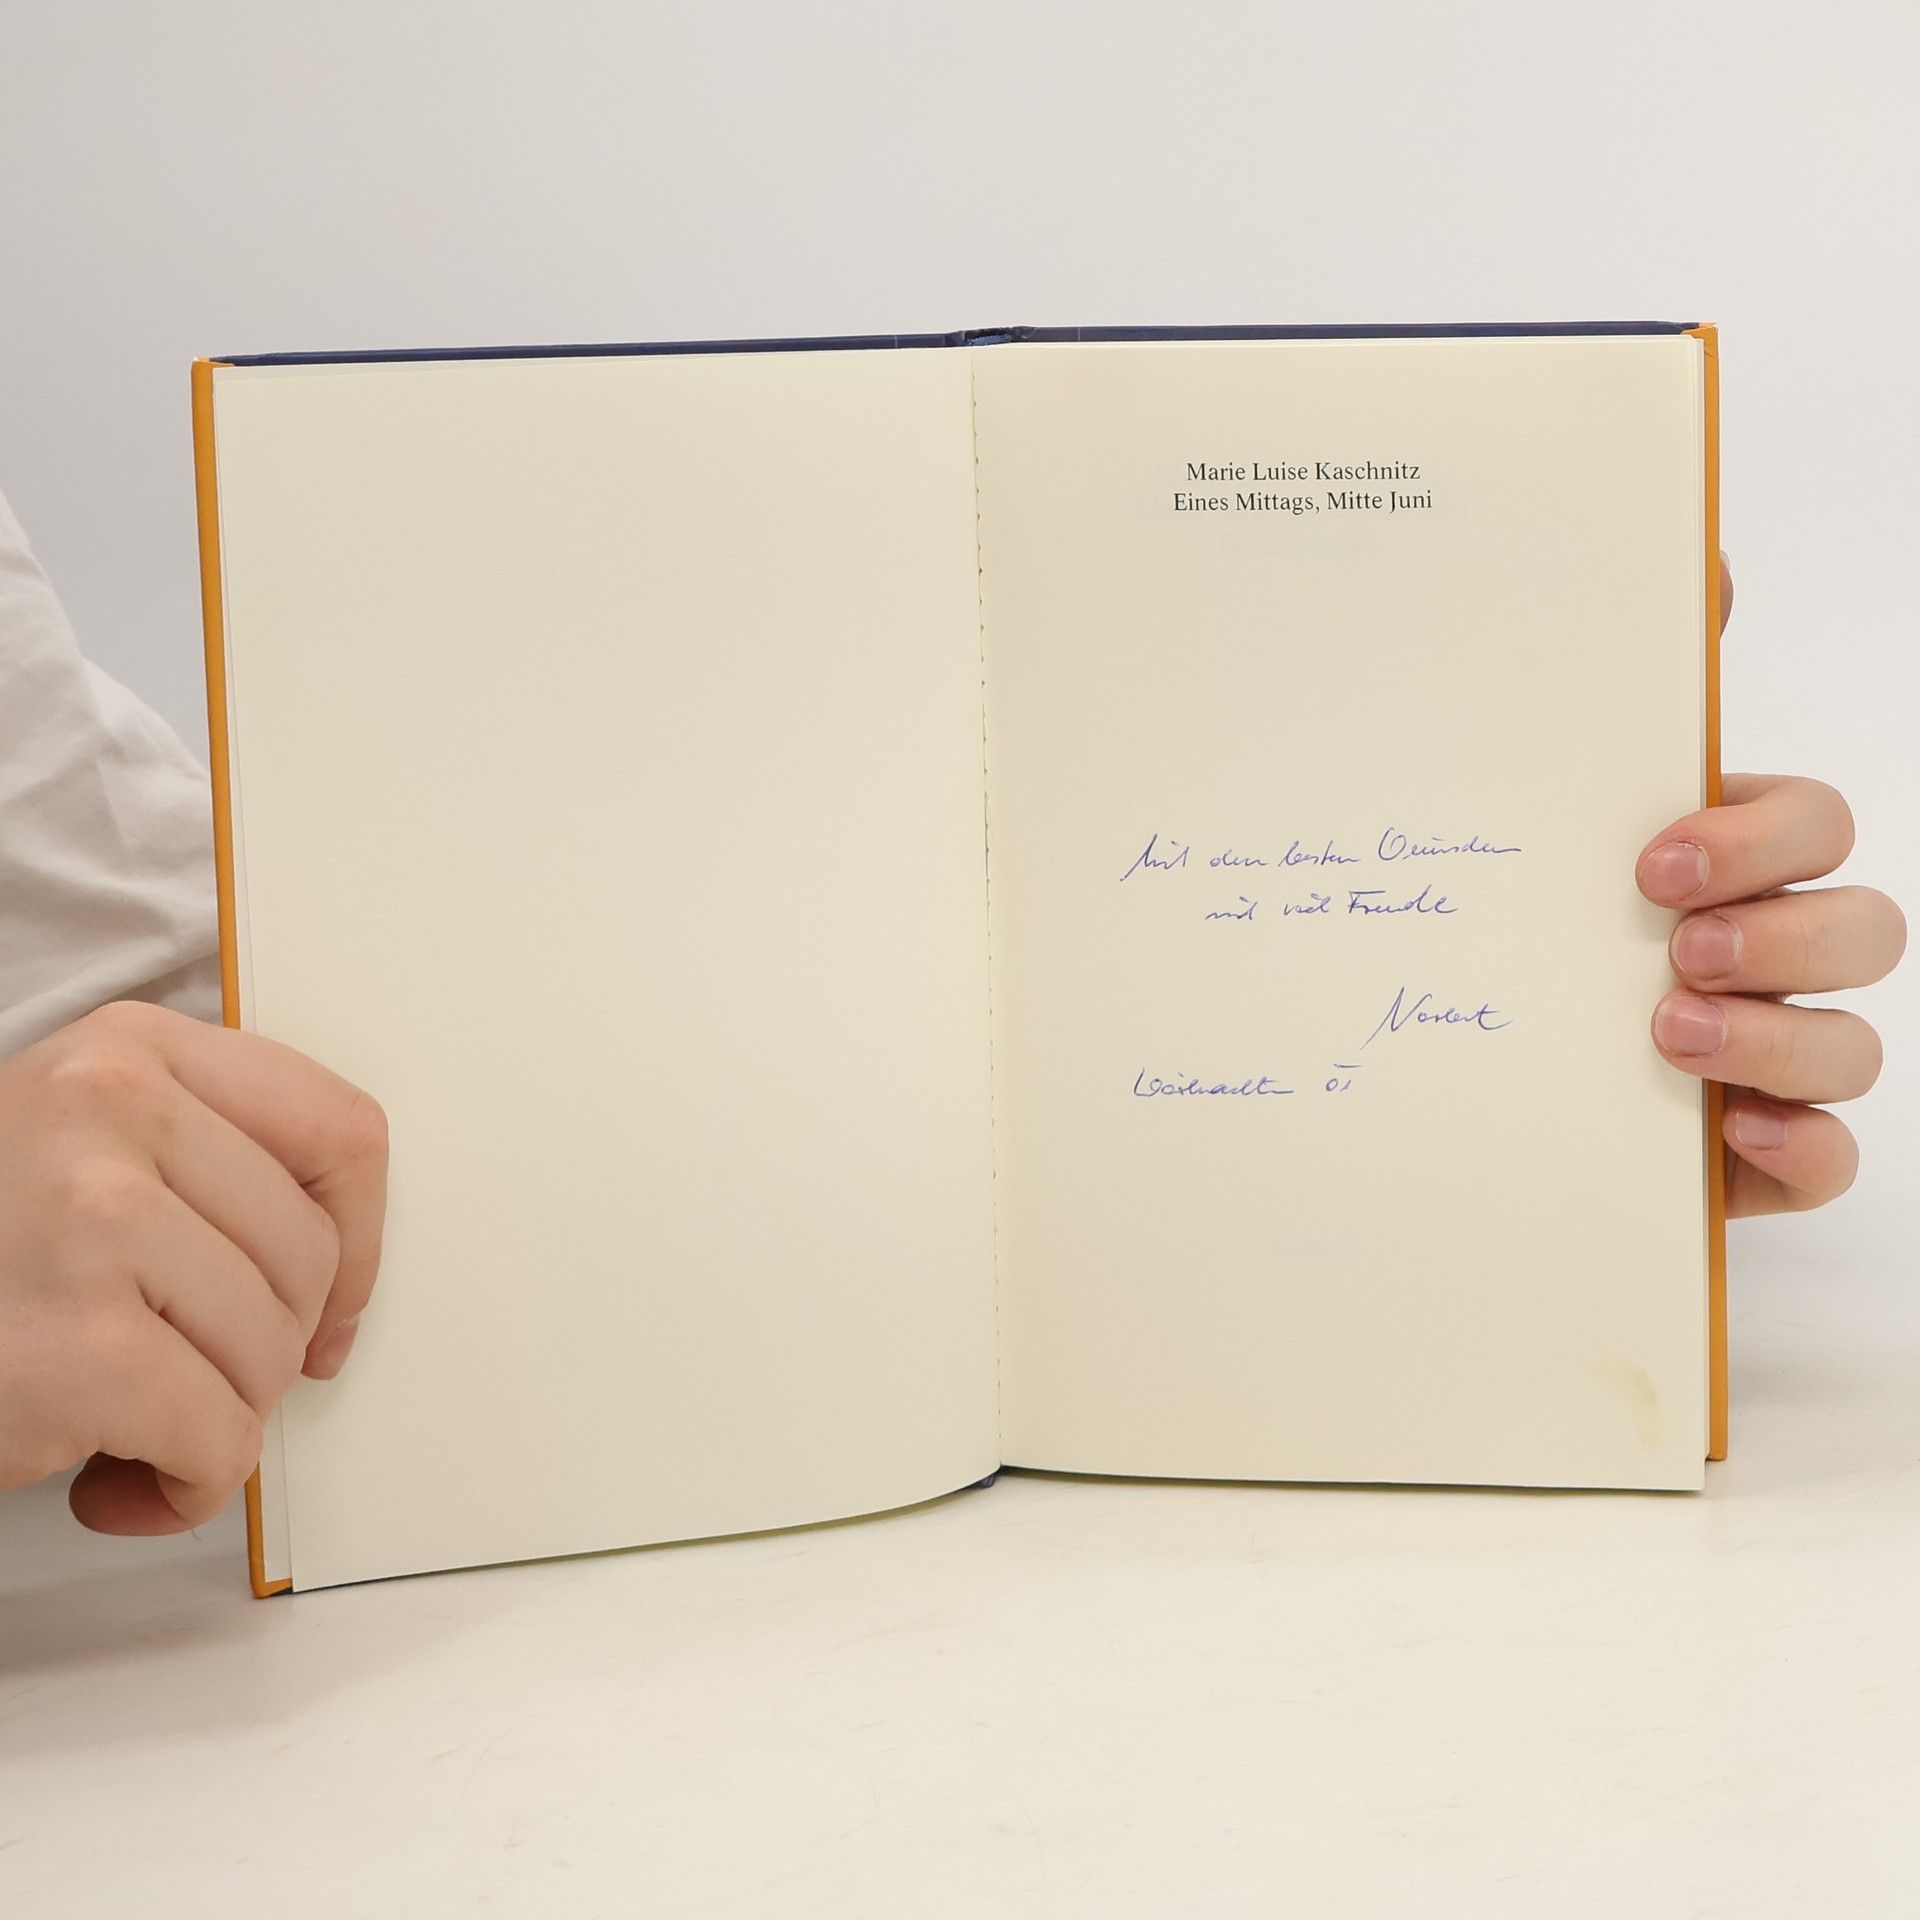 Marie Luise Kaschnitz
Eines Mittags, Mitte Juni
Mit den besten Wünschen
mit viel Freude
Norbert
Weihnachten 01